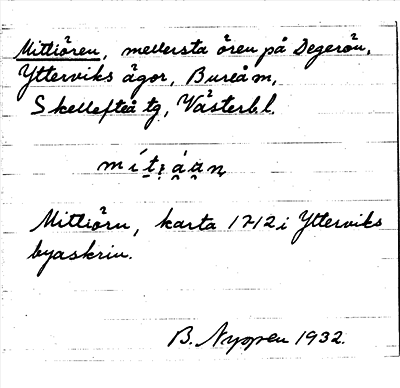 Mittiören, mellersta ören på Degerön,
Ytterviks ägor, Bureå m,
Skellefteå tg, Västerb.l.
Mittiörn, karta 1712 i Ytterviks
byaskrin.
B. Nyman 1932.